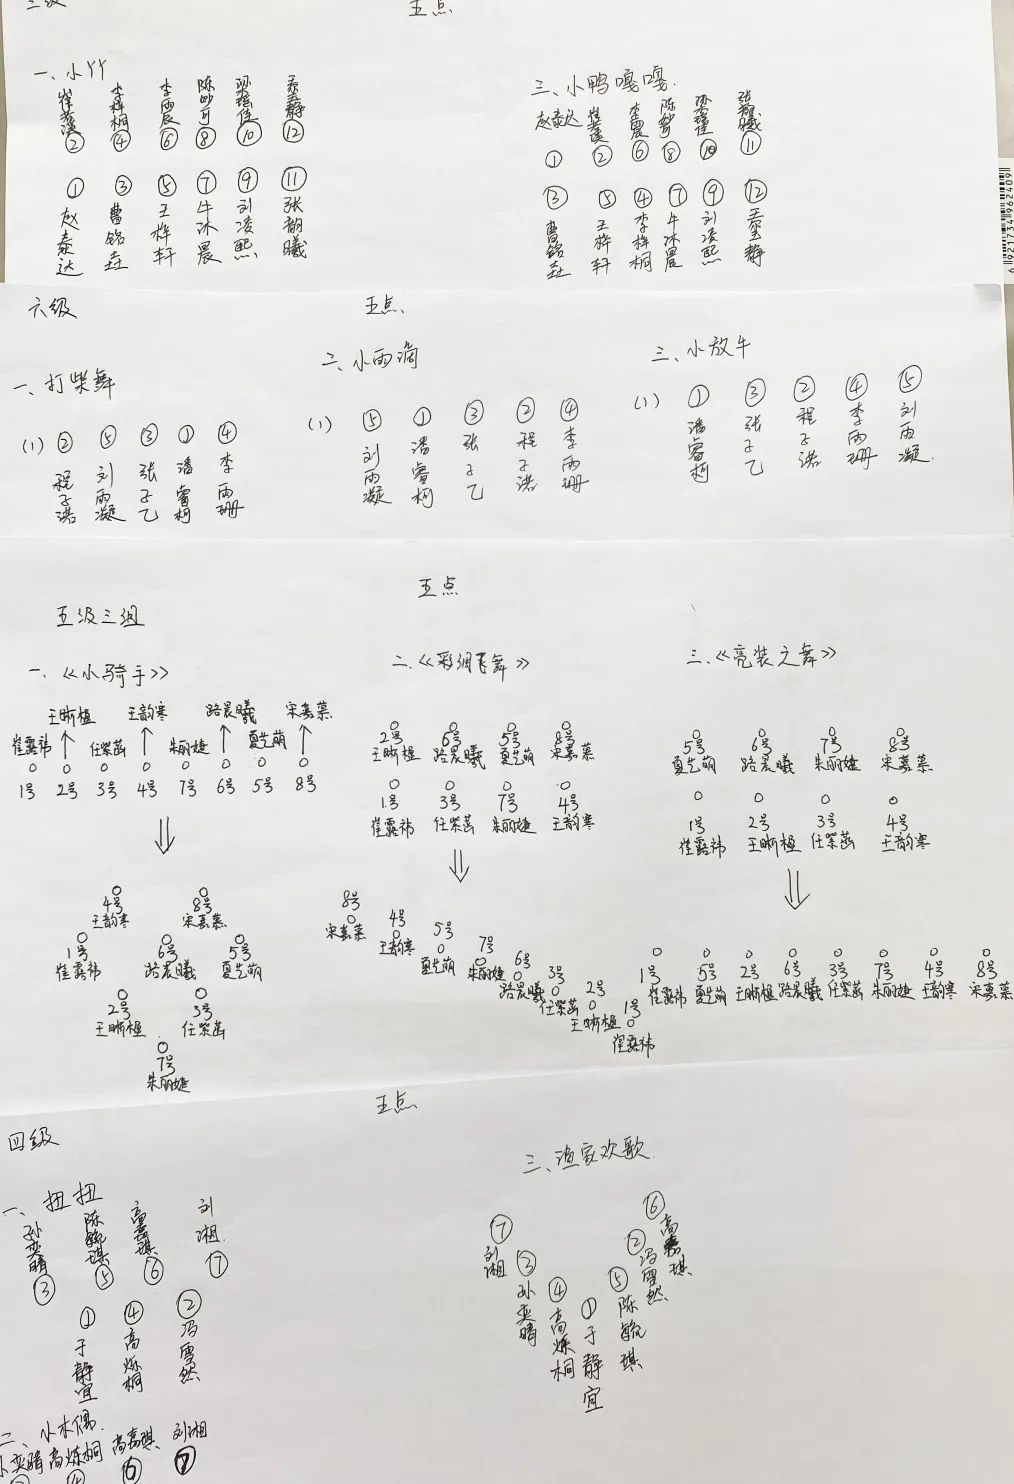 三级
五点
一、小丫丫
李梓桐 李雨宸 陈妙可
② ④ ⑥ ⑧ ⑩ ⑫
① ③ ⑤ ⑦ ⑨ ⑪
赵泰达 曹铭垚 王梓轩 牛沐晨 刘凌熙 张韵曦
三、小鸭嘎嘎
赵泰达 陈妙可 张韵曦
① ② ⑥ ⑧ ⑩ ⑪
③ ⑤ ④ ⑦ ⑨ ⑫
曹铭垚 王梓轩 李梓桐 牛沐晨 刘凌熙
六级
五点
一、打柴舞
(1) ② ⑤ ③ ① ④
程子涵 刘雨凝 张子乙 潘睿柯 李雨珊
二、小雨滴
(1) ⑤ ① ③ ② ④
刘雨凝 潘睿柯 张子乙 程子涵 李雨珊
三、小放牛
(1) ① ③ ② ④ ⑤
潘睿柯 张子乙 程子涵 李雨珊 刘雨凝
五点
五级三组
一、《小骑手》
王晰楹 王韵寒 路晨曦 宋嘉慕
崔露祎 任紫菡 朱丽婕 夏艺萌
1号 2号 3号 4号 7号 6号 5号 8号
4号 8号
王韵寒 宋嘉慕
1号 6号 5号
崔露祎 路晨曦 夏艺萌
2号 3号
王晰楹 任紫菡
7号
朱丽婕
二、《彩绸飞舞》
2号 6号 5号 8号
王晰楹 路晨曦 夏艺萌 宋嘉慕
1号 3号 7号 4号
崔露祎 任紫菡 朱丽婕 王韵寒
8号
宋嘉慕
4号
王韵寒
5号
夏艺萌
7号
朱丽婕
6号
路晨曦
3号
任紫菡
2号
王晰楹
1号
崔露祎
三、《亮装之舞》
5号 6号 7号 8号
夏艺萌 路晨曦 朱丽婕 宋嘉慕
1号 2号 3号 4号
崔露祎 王晰楹 任紫菡 王韵寒
1号 5号 2号 6号 3号 7号 4号 8号
崔露祎 夏艺萌 王晰楹 路晨曦 任紫菡 朱丽婕 王韵寒 宋嘉慕
五点
四级
一、扭扭
孙奕晴 陈毓琪 高嘉琪 刘湘
③ ⑤ ⑥ ⑦
① ④ ②
于静宜 高烁桐 冯雪然
二、小木偶
孙奕晴 高烁桐 高嘉琪 刘湘
④ ⑥ ⑦
三、渔家欢歌
⑦ ③ ④ ① ⑤ ② ⑥
刘湘 孙奕晴 高烁桐 于静宜 陈毓琪 冯雪然 高嘉琪
6921734962409